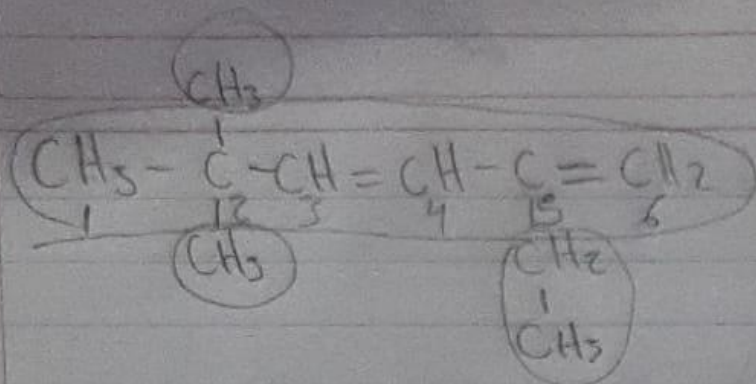 CH3
|
CH3 - C - CH = CH - C = CH2
1 |2 3 4 |5 6
CH3 CH2
|
CH3